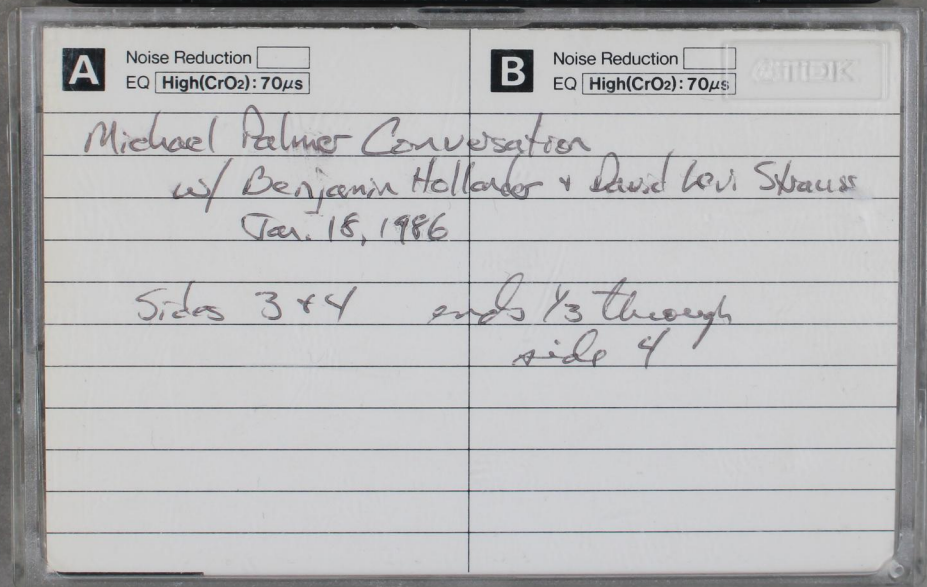 A Noise Reduction
EQ High(CrO2): 70μs
B Noise Reduction
EQ High(CrO2): 70μs
TDK
Michael Palmer Conversation
w/ Benjamin Hollander + David Levi Strauss
Jan. 18, 1986
Sides 3 + 4 ends 1/3 through
side 4